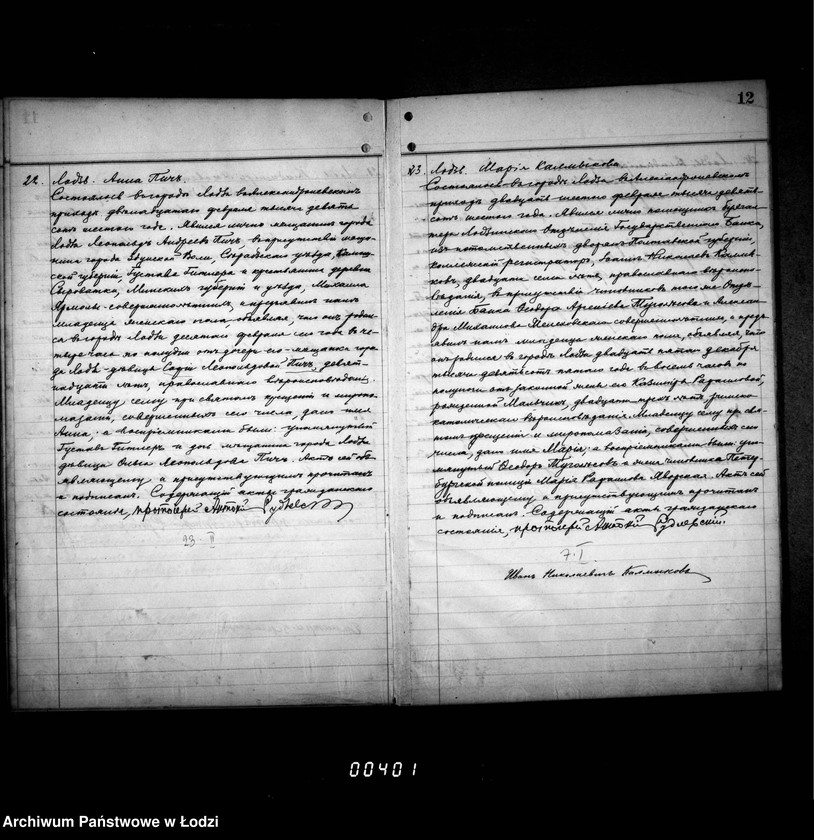 12
22. Лодзь. Анна Пичъ.
Состоялось въ городѣ Лодзи въ Александроневскомъ
приходѣ двѣнадцатаго февраля тысяча девять
сотъ шестого года. Явился лично мѣщанинъ города
Лодзи Леопольдъ Андреевъ Пичъ, въ присутствіи мѣща-
нина города Здунской Воли, Сѣрадзскаго уѣзда, Калиш-
ской губерніи, Густава Гитлера и крестьянина деревни
Сыроватка, Минской губерніи и уѣзда, Михаила
совершеннолѣтнихъ, и предъявилъ намъ
младенца женскаго пола, объявляя, что онъ родил-
ся въ городѣ Лодзи десятаго февраля сего года въ че-
тыре часа по полудни отъ дочери его мѣщанки горо-
да Лодзи дѣвицы Софіи Леопольдовой Пичъ, девят-
надцати лѣтъ, православнаго вѣроисповѣданія.
Младенцу сему при святомъ крещеніи и миропо-
мазаніи, совершенныхъ сего числа, дано имя
Анна, а воспріемниками были: упомянутый
Густавъ Гитлеръ и дочь мѣщанина города Лодзи
дѣвица Ольга Леопольдова Пичъ. Актъ сей объ-
являющему и присутствующимъ прочитанъ
и подписанъ. Содержащій акты гражданскаго
состоянія, протоіерей Антоній Рудлевскій
23. II
23. Лодзь. Марія Калмыкова.
Состоялось въ городѣ Лодзи въ Александроневскомъ
приходѣ двадцать шестого февраля тысяча девять-
сотъ шестого года. Явился лично помощникъ бухгал-
тера Лодзинскаго Отдѣленія Государственнаго Банка,
изъ потомственныхъ дворянъ Полтавской губерніи,
коллежскій регистраторъ, Іоаннъ Николаевъ Калмы-
ковъ, двадцати семи лѣтъ, православнаго вѣроиспо-
вѣданія, въ присутствіи чиновниковъ того же Отдѣ-
ленія Банка Ѳеодора Арсеніева и Алексан-
дра совершеннолѣтнихъ, и предъ-
явилъ намъ младенца женскаго пола, объявляя, что
онъ родился въ городѣ Лодзи двадцать пятаго декабря
тысяча девятьсотъ пятаго года въ восемь часовъ по
полуночи отъ законной жены его Казимиры
рожденной двадцати трехъ лѣтъ, римско-
католическаго вѣроисповѣданія. Младенцу сему при свя-
томъ крещеніи и миропомазаніи, совершенныхъ сего
числа, дано имя Марія, а воспріемниками были: упо-
мянутый Ѳеодоръ и жена чиновника Петер-
бургской полиціи Марія Яворская. Актъ сей
объявляющему и присутствующимъ прочитанъ
и подписанъ. Содержащій акты гражданскаго
состоянія, протоіерей Антоній Рудлевскій.
7. I
Иванъ Николаевичъ Калмыковъ
00401
Archiwum Państwowe w Łodzi